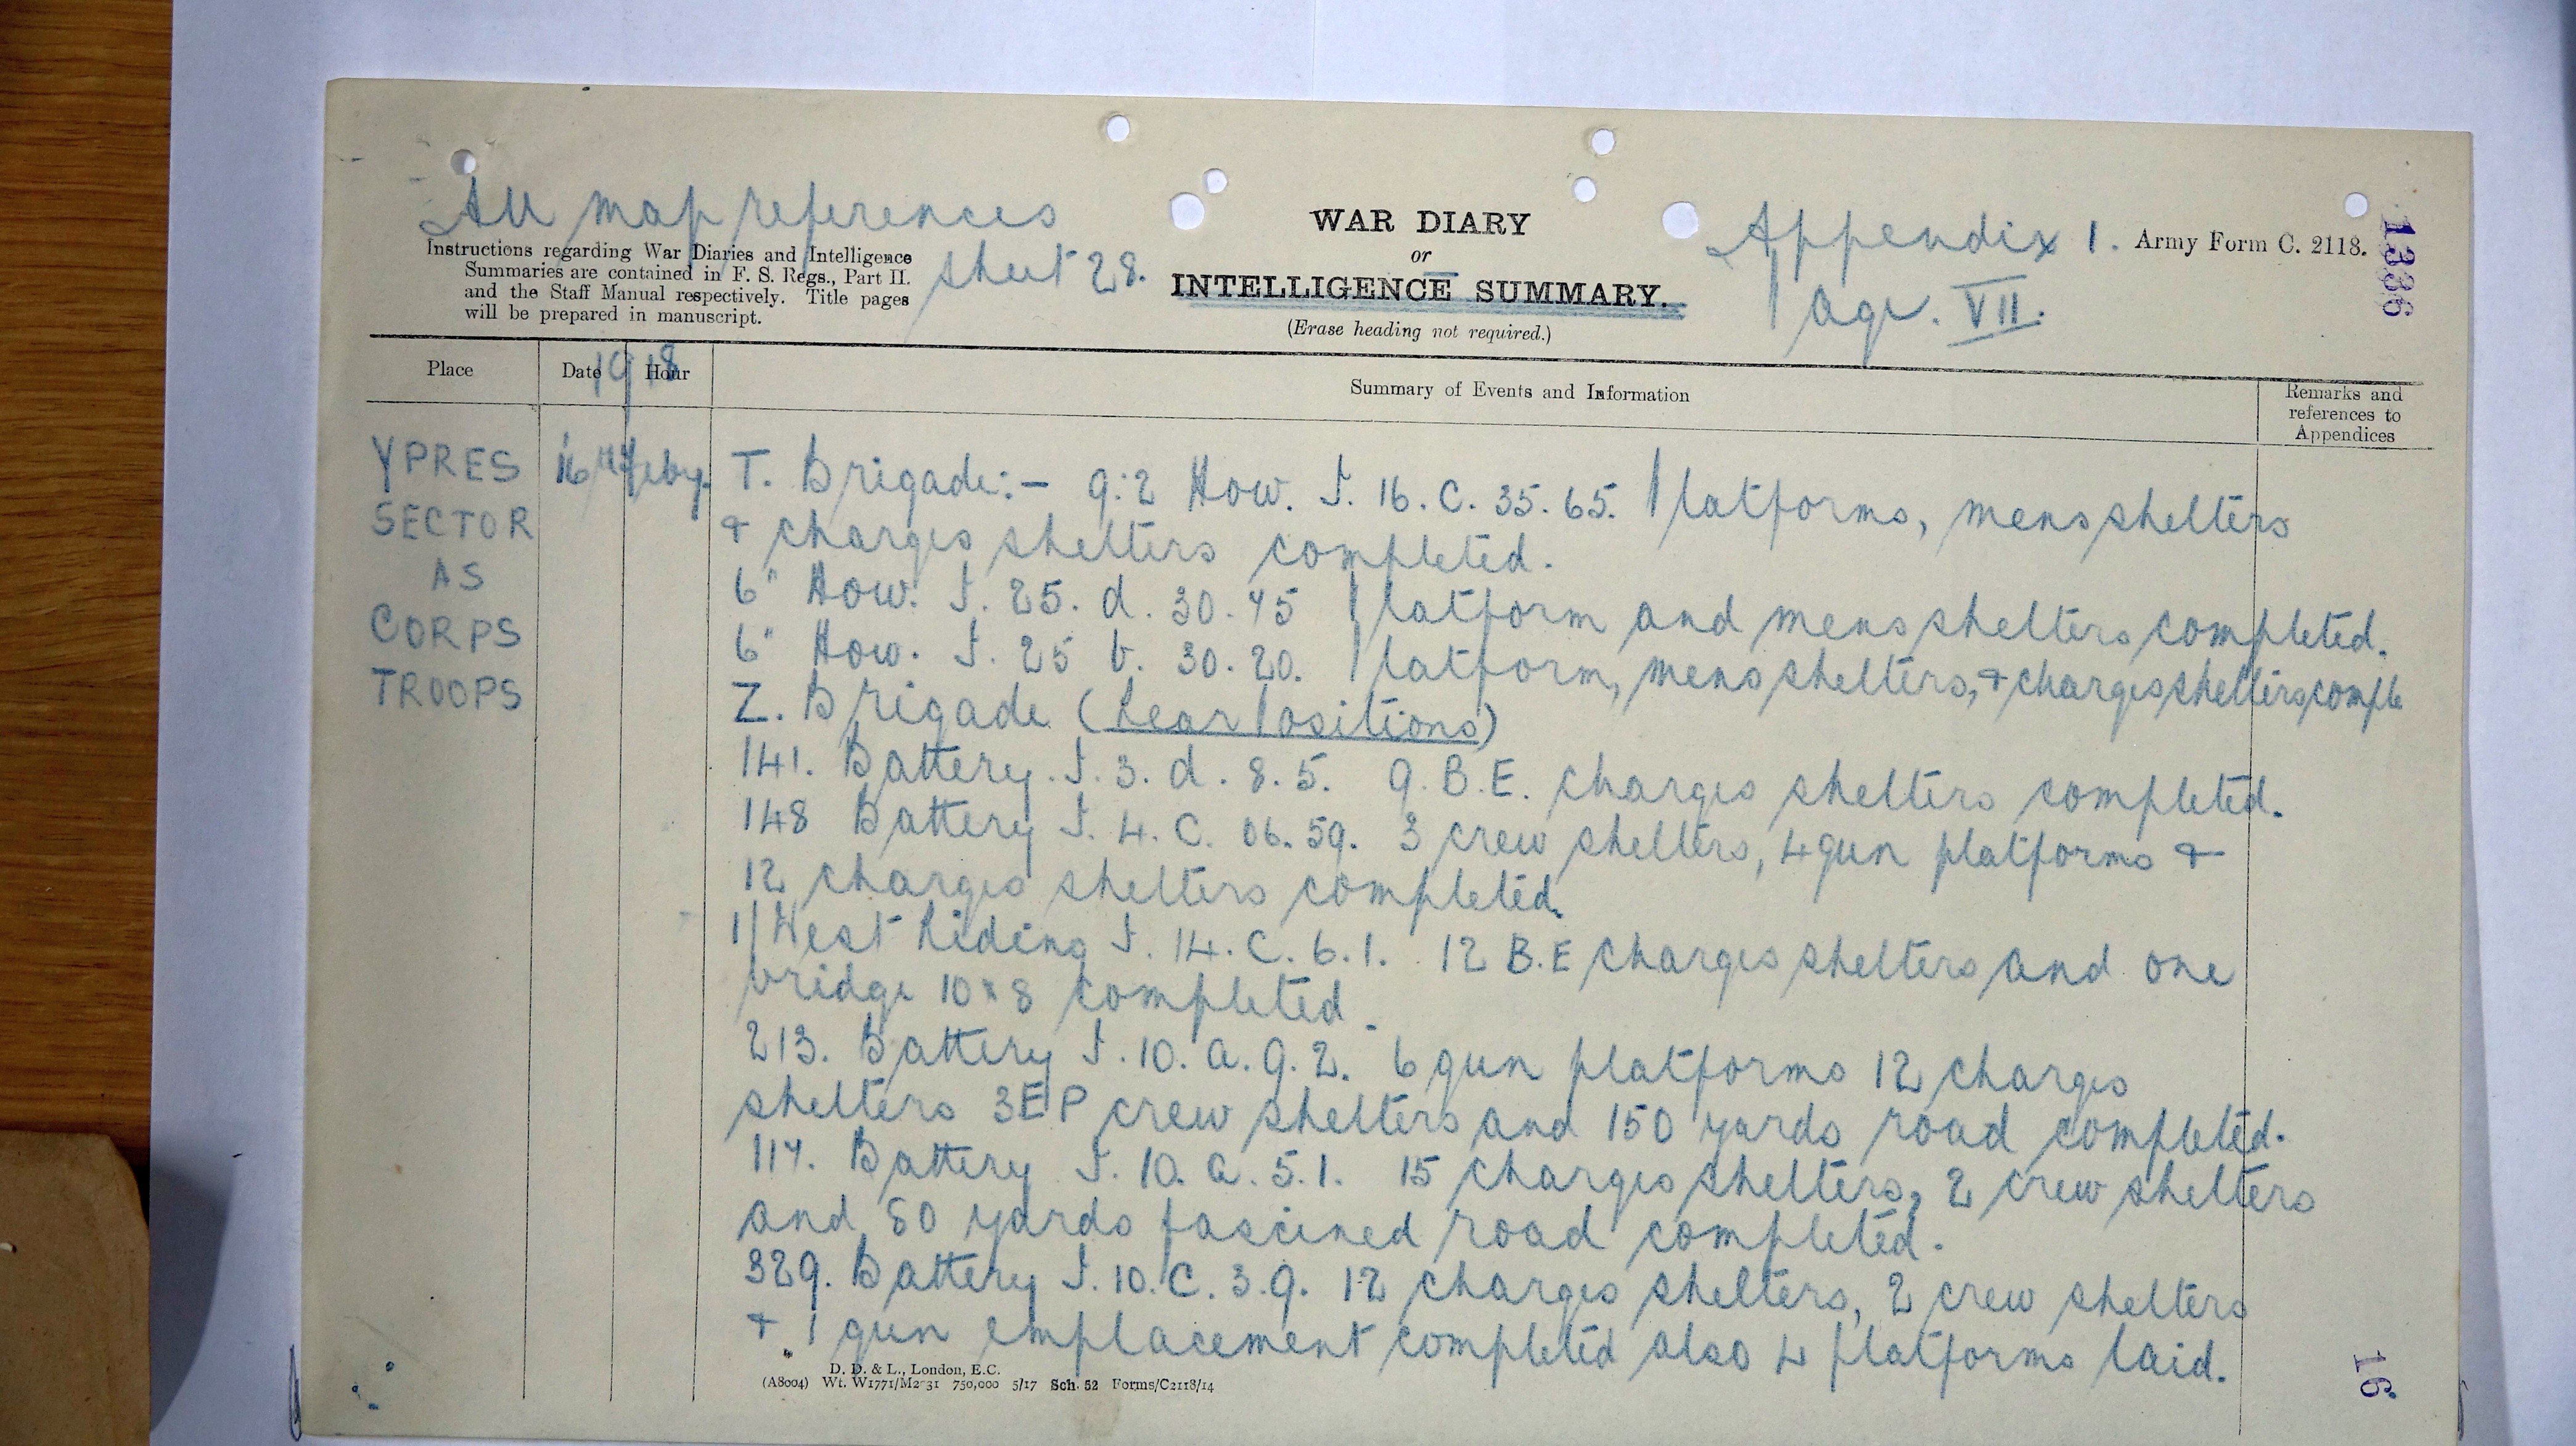 All map references
sheet 28.
Instructions regarding War Diaries and Intelligence
Summaries are contained in F. S. Regs., Part II.
and the Staff Manual respectively. Title pages
will be prepared in manuscript.
WAR DIARY
or
INTELLIGENCE SUMMARY.
(Erase heading not required.)
Appendix 1.
Page. VII.
Army Form C. 2118.
1336
Place
Date
Hour
1918
Summary of Events and Information
Remarks and
references to
Appendices
YPRES
SECTOR
AS
CORPS
TROOPS
16th Feby.
T. Brigade:- 9.2 How. J. 16. C. 35. 65. Platforms, mens shelters
+ charges shelters completed.
6" How. J. 25. d. 30. 75 Platform and mens shelters completed.
6" How. J. 25 b. 30. 20. Platform, mens shelters, + charges shelters comple
Z. Brigade (Rear Positions)
141. Battery. J. 3. d. 8. 5. 9. B.E. charges shelters completed.
148 Battery J. 4. C. 06. 59. 3 crew shelters, 4 gun platforms +
12 charges shelters completed.
1/West Riding J. 14. C. 6. 1. 12 B.E charges shelters and one
bridge 10 x 8 completed.
213. Battery J. 10. a. 9. 2. 6 gun platforms 12 charges
shelters 3 E P crew shelters and 150 yards road completed.
117. Battery J. 10. a. 5. 1. 15 charges shelters, 2 crew shelters
and 80 yards fascined road completed.
329. Battery J. 10. C. 3. 9. 12 charges shelters, 2 crew shelters
+ 1 gun emplacement completed also 4 platforms laid.
D. D. & L., London, E.C.
(A8004) Wt. W1771/M2031 750,000 5/17 Sch. 52 Forms/C2118/14
16